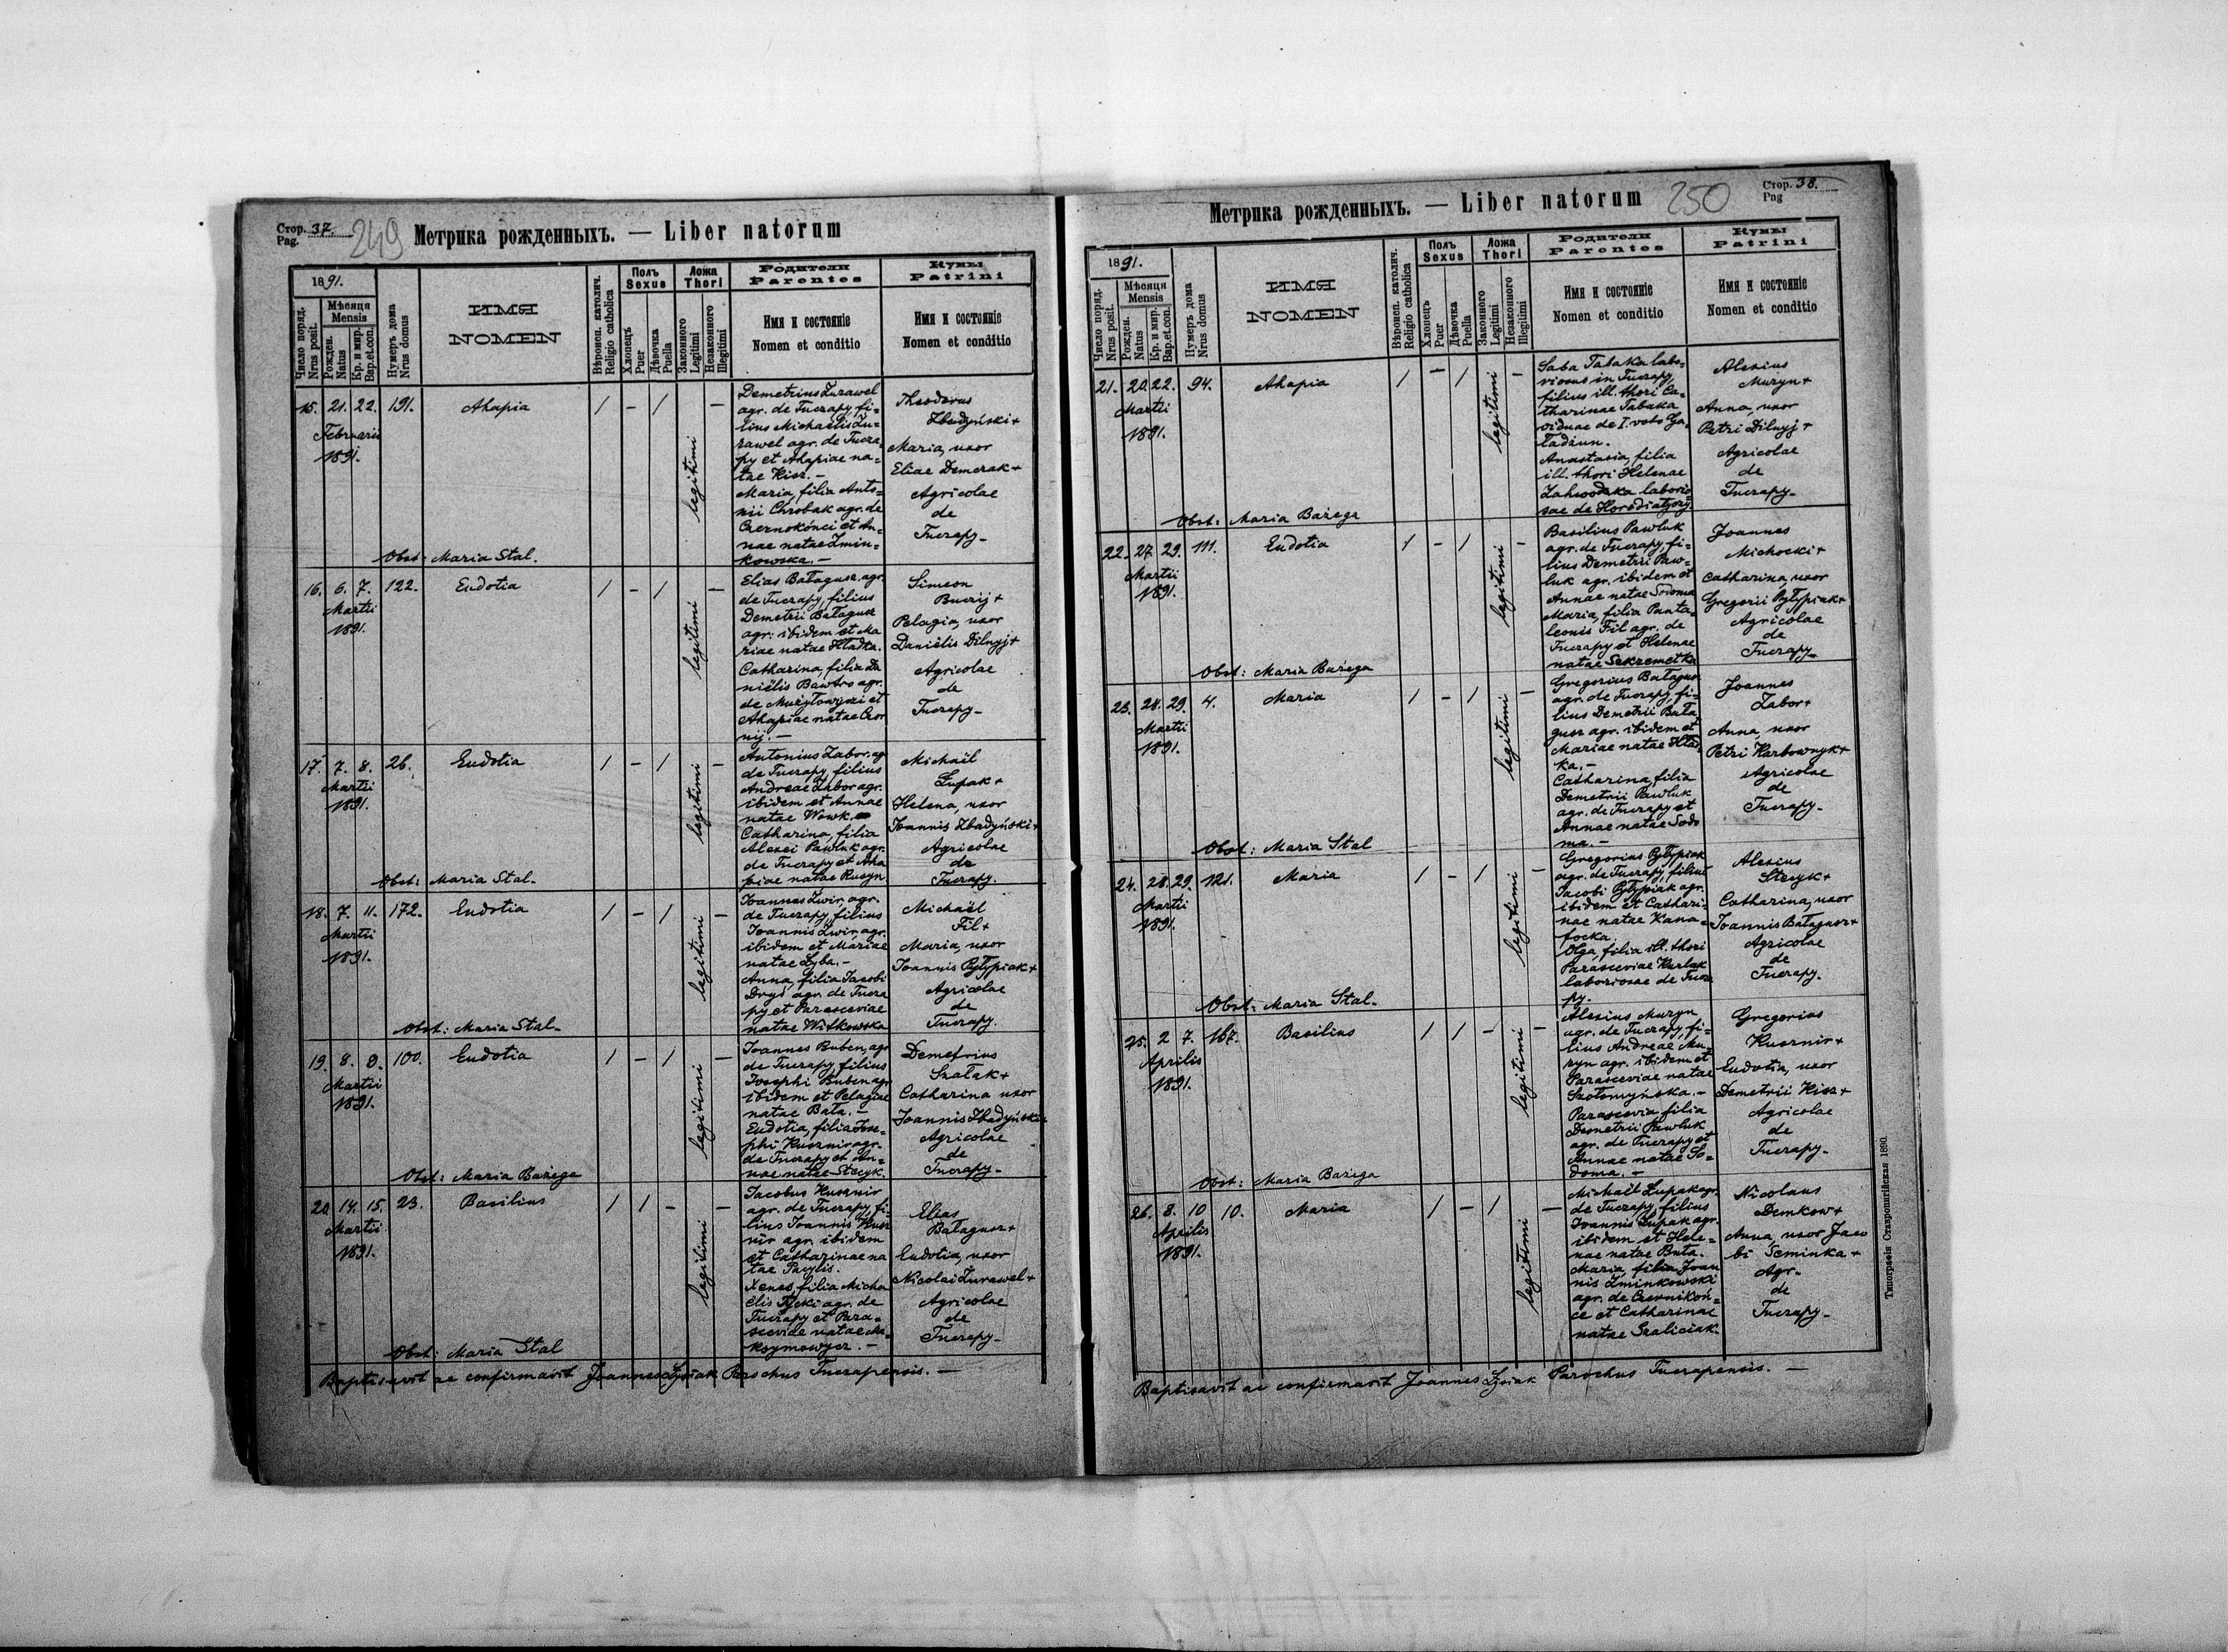 Стор. 37.
Pag.
249
Метрика рожденныхъ. — Liber natorum
1891.
Число поряд.
Nrus posit.
Мѣсяця
Mensis
Рожден.
Natus
Кр. и мир.
Bap.et.con.
Нумеръ дома
Nrus domus
ИМЯ
NOMEN
Вѣроисп. католич.
Religio catholica
Полъ
Sexus
Хлопецъ
Puer
Дѣвочка
Puella
Ложа
Thori
Законного
Legitimi
Незаконного
Illegitimi
Родители
Parentes
Имя и состояніе
Nomen et conditio
Кумы
Patrini
Имя и состояніе
Nomen et conditio
15. 21. 22. 191. Ahapia / - / legitimi -
Februarii
1891.
Demetrius Żurawel
agr. de Tuczapy, fi=
lius Michaelis Żu=
rawel agr. de Tucza
py et Ahapiae na=
tae Kisz. -
Maria, filia Anto=
nii Chrobak agr. de
Czernokońci et An=
nae natae Żmin=
kowska. -
Theodorus
Zbadyński +
Maria, uxor
Eliae Demczak +
Agricolae
de
Tuczapy -
Obst: Maria Stal.
16. 6. 7. 122. Eudotia / - / legitimi -
Martii
1891.
Elias Bałagusz agr.
de Tuczapy, filius
Demetrii Bałagusz
agr: ibidem et Ma
riae natae Hładka.
Catharina, filia Da
niëlis Bawtro agr.
de
Ahapiae natae Czor
nij. -
Simeon
Buczij +
Pelagia, uxor
Daniëlis Dilnyj +
Agricolae
de
Tuczapy -
17. 7. 8. 26. Eudotia / - / legitimi -
Martii
1891.
Antonius Zabor. ag
de Tuczapy, filius
Andreae Zabor agr.
ibidem et Annae
natae Wowk.
Catharina, filia
Alexei Pawluk agr.
de Tuczapy et Aha
piae natae Rusyn
Michaël
Łupak +
Helena, uxor
Joannis Zbadyński +
Agricolae
de
Tuczapy.
Obst: Maria Stal -
18. 7. 11. 172. Eudotia / - / legitimi -
Martii
1891.
Joannes Żwir, agr.
de Tuczapy, filius
Joannis Żwir, agr.
ibidem et Mariae
natae Łyba. -
Anna, filia Jacobi
Dryś agr. de Tucza
py et Parasceviae
natae Witkowska
Michaël
Fil +
Maria, uxor
Joannis Pyłypiak +
Agricolae
de
Tuczapy.
Obst: Maria Stal -
19. 8. 9. 100. Eudotia / - / legitimi -
Martii
1891.
Joannes Buben, agr
de Tuczapy, filius
Josephi Buben agr
ibidem et Pelagiae
natae Bata. -
Eudotia, filia Jose=
phi Kusznir agr.
de Tuczapy et An=
nae natae Stecyk.
Demetrius
Szałak +
Catharina uxor
Joannis Zbadyński +
Agricolae
de
Tuczapy -
Obst: Maria Bażega
20. 14. 15. 23. Basilius / / - legitimi -
Martii
1891.
Jacobus Kusznir
agr. de Tuczapy, fi=
lius Joannis Kusz
nir agr. ibidem
et Catharinae na
tae Pacylis.
Xenes, filia Micha
ëlis agr. de
Tuczapy et Para=
sceviae natae Ma
ksymowycz. -
Elias
Bałagusz +
Eudotia, uxor
Nicolai Żurawel +
Agricolae
de
Tuczapy -
Obst: Maria Stal
Baptisavit ac confirmavit Joannes Łysiak Parochus Tuczapensis. —
Стор. 38.
Pag
250
Метрика рожденныхъ. — Liber natorum
1891.
Число поряд.
Nrus posit.
Мѣсяця
Mensis
Рожден.
Natus
Кр. и мир.
Bap.et.con.
Нумеръ дома
Nrus domus
ИМЯ
NOMEN
Вѣроисп. католич.
Religio catholica
Полъ
Sexus
Хлопецъ
Puer
Дѣвочка
Puella
Ложа
Thori
Законного
Legitimi
Незаконного
Illegitimi
Родители
Parentes
Имя и состояніе
Nomen et conditio
Кумы
Patrini
Имя и состояніе
Nomen et conditio
21. 20. 22. 94. Ahapia / - / legitimi -
Martii
1891.
Saba Tabaka labo=
riosus in Tuczapy,
filius ill. thori Ca=
tharinae Tabaka
viduae de I. voto
Anastasia, filia
ill. thori Helenae
laborio
sae de
Alexius
Muzyn +
Anna, uxor
Petri Dilnyj +
Agricolae
de
Tuczapy -
Obst: Maria Bażega
22. 27. 29. 111. Eudotia / - / legitimi -
Martii
1891.
Basilius Pawluk
agr. de Tuczapy, fi=
lius Demetrii Paw=
luk agr. ibidem et
Annae natae Sodoma
Maria, filia Panta=
leonis Fil agr. de
Tuczapy et Helenae
natae Szkremetka
Joannes
Michocki +
Catharina, uxor
Gregorii Pyłypiak +
Agricolae
de
Tuczapy -
Obst: Maria Bażega
23. 28. 29. 4. Maria / - / legitimi -
Martii
1891.
Gregorius Bałagusz
agr. de Tuczapy, fi=
lius Demetrii Bała
gusz agr. ibidem et
Mariae natae Hład
ka. -
Catharina, filia
Demetrii Pawluk
agr. de Tuczapy et
Annae natae Sodo
ma. -
Joannes
Zabor +
Anna, uxor
Petri Harbownyk +
Agricolae
de
Tuczapy -
Obst: Maria Stal
24. 28. 29. 121. Maria / - / legitimi -
Martii
1891.
Gregorius Pyłypiak
agr. de Tuczapy, filius
Jacobi Pyłypiak agr.
ibidem et Cathari=
nae natae Kana=
focka.
Olga, filia ill. thori
Parasceviae Hurlak
laboriosae de Tucza
py.
Alexius
Stecyk +
Catharina, uxor
Joannis Bałagusz +
Agricolae
de
Tuczapy.
Obst: Maria Stal -
25. 2 7. 167. Basilius / / - legitimi -
Aprilis
1891.
Alexius Muzyn
agr. de Tuczapy, fi=
lius Andreae Mu=
zyn agr. ibidem et
Parasceviae natae
Szotomyńska. -
Parascevia filia
Demetrii Pawluk
agr. de Tuczapy et
Annae natae So=
doma. -
Gregorius
Kusznir +
Eudotia, uxor
Demetrii Kisz +
Agricolae
de
Tuczapy -
Obst: Maria Bażega
26. 8. 10 10. Maria / - / legitimi -
Aprilis
1891.
Michaël Łupak agr.
de Tuczapy, filius
Joannis Łupak agr.
ibidem et Hele=
nae natae Buta.
Maria, filia Joan
nis Żminkowski
agr. de Czernikoń=
ce et Catharinae
natae Szaliciak.
Nicolaus
Demkow +
Anna, uxor Jaco
bi Seminka +
Agr.
de
Tuczapy -
Baptisavit ac confirmavit Joannes Łysiak Parochus Tuczapensis. —
Типографія Ставропигійская 1890.